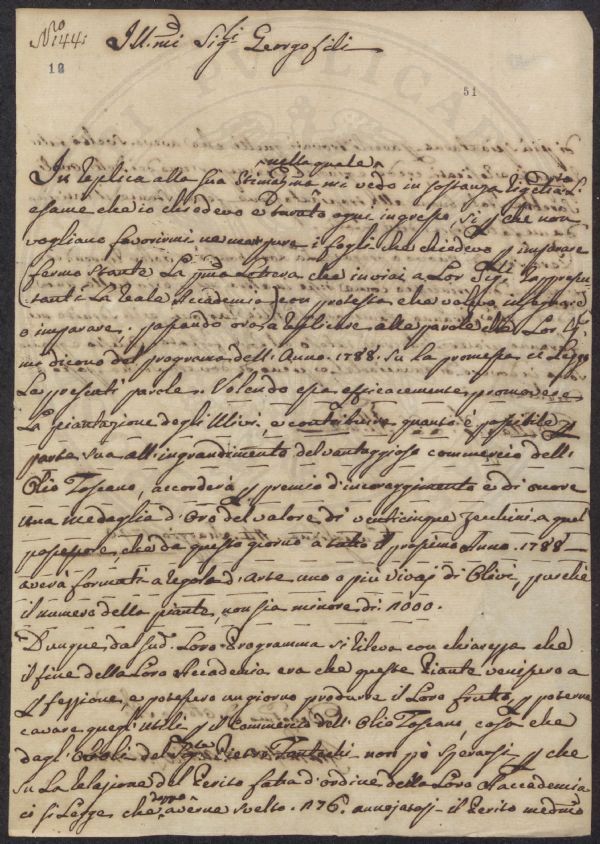 N.o 144.
Ill.mi Sig.i Georgofili
18
51
nella quale
In replica alla Sua Stimatma mi vedo in sostanza
esame che io chiedevo e ogni ingresso, si che non
vogliano favorirmi nemmeno i fogli che chiedevo p imparare
fermo stante La pma Lettera che inviai a Lor Sig.ri
La Reale Accademia con protesta che volevo
o imparare. passando ora a replicare alle parole che Lor
mi dicono del programa dell'Anno. 1788. su la promessa si Legge
Le presenti parole. Volendo essa efficacemente promovere
La piantazione degli Ulivi, e contribuire quanto è possibile p
parte sua all'ingrandimento del vantaggioso commercio dell'
Olio Toscano, accorderà p premio d'incoraggimento e di onore
una medaglia d'Oro del valore di venticinque Zecchini a quel
possessore, che da questo giorno a tutto il prossimo Anno. 1788
averà formati a regola d'arte uno o più Vivaj di Olivi, purchè
il numero delle piante, non sia minore di 1000.
Dunque dal Sud.o Loro Programma si rileva con chiarezza che
il fine della Loro Accademia era che queste Piante venissero a
pfezzione, e potessero un giorno produrre il Loro frutto, p poterne
cavare quegli Utili p il Commercio dell'Olio Toscano, cosa che
dagl' del Pietro non può sperarsi p che
su La relazione del Perito fatta d'ordine della Loro Accademia
ci si Legge che doppo averne svelto. 176. annejatoj il Perito medmo